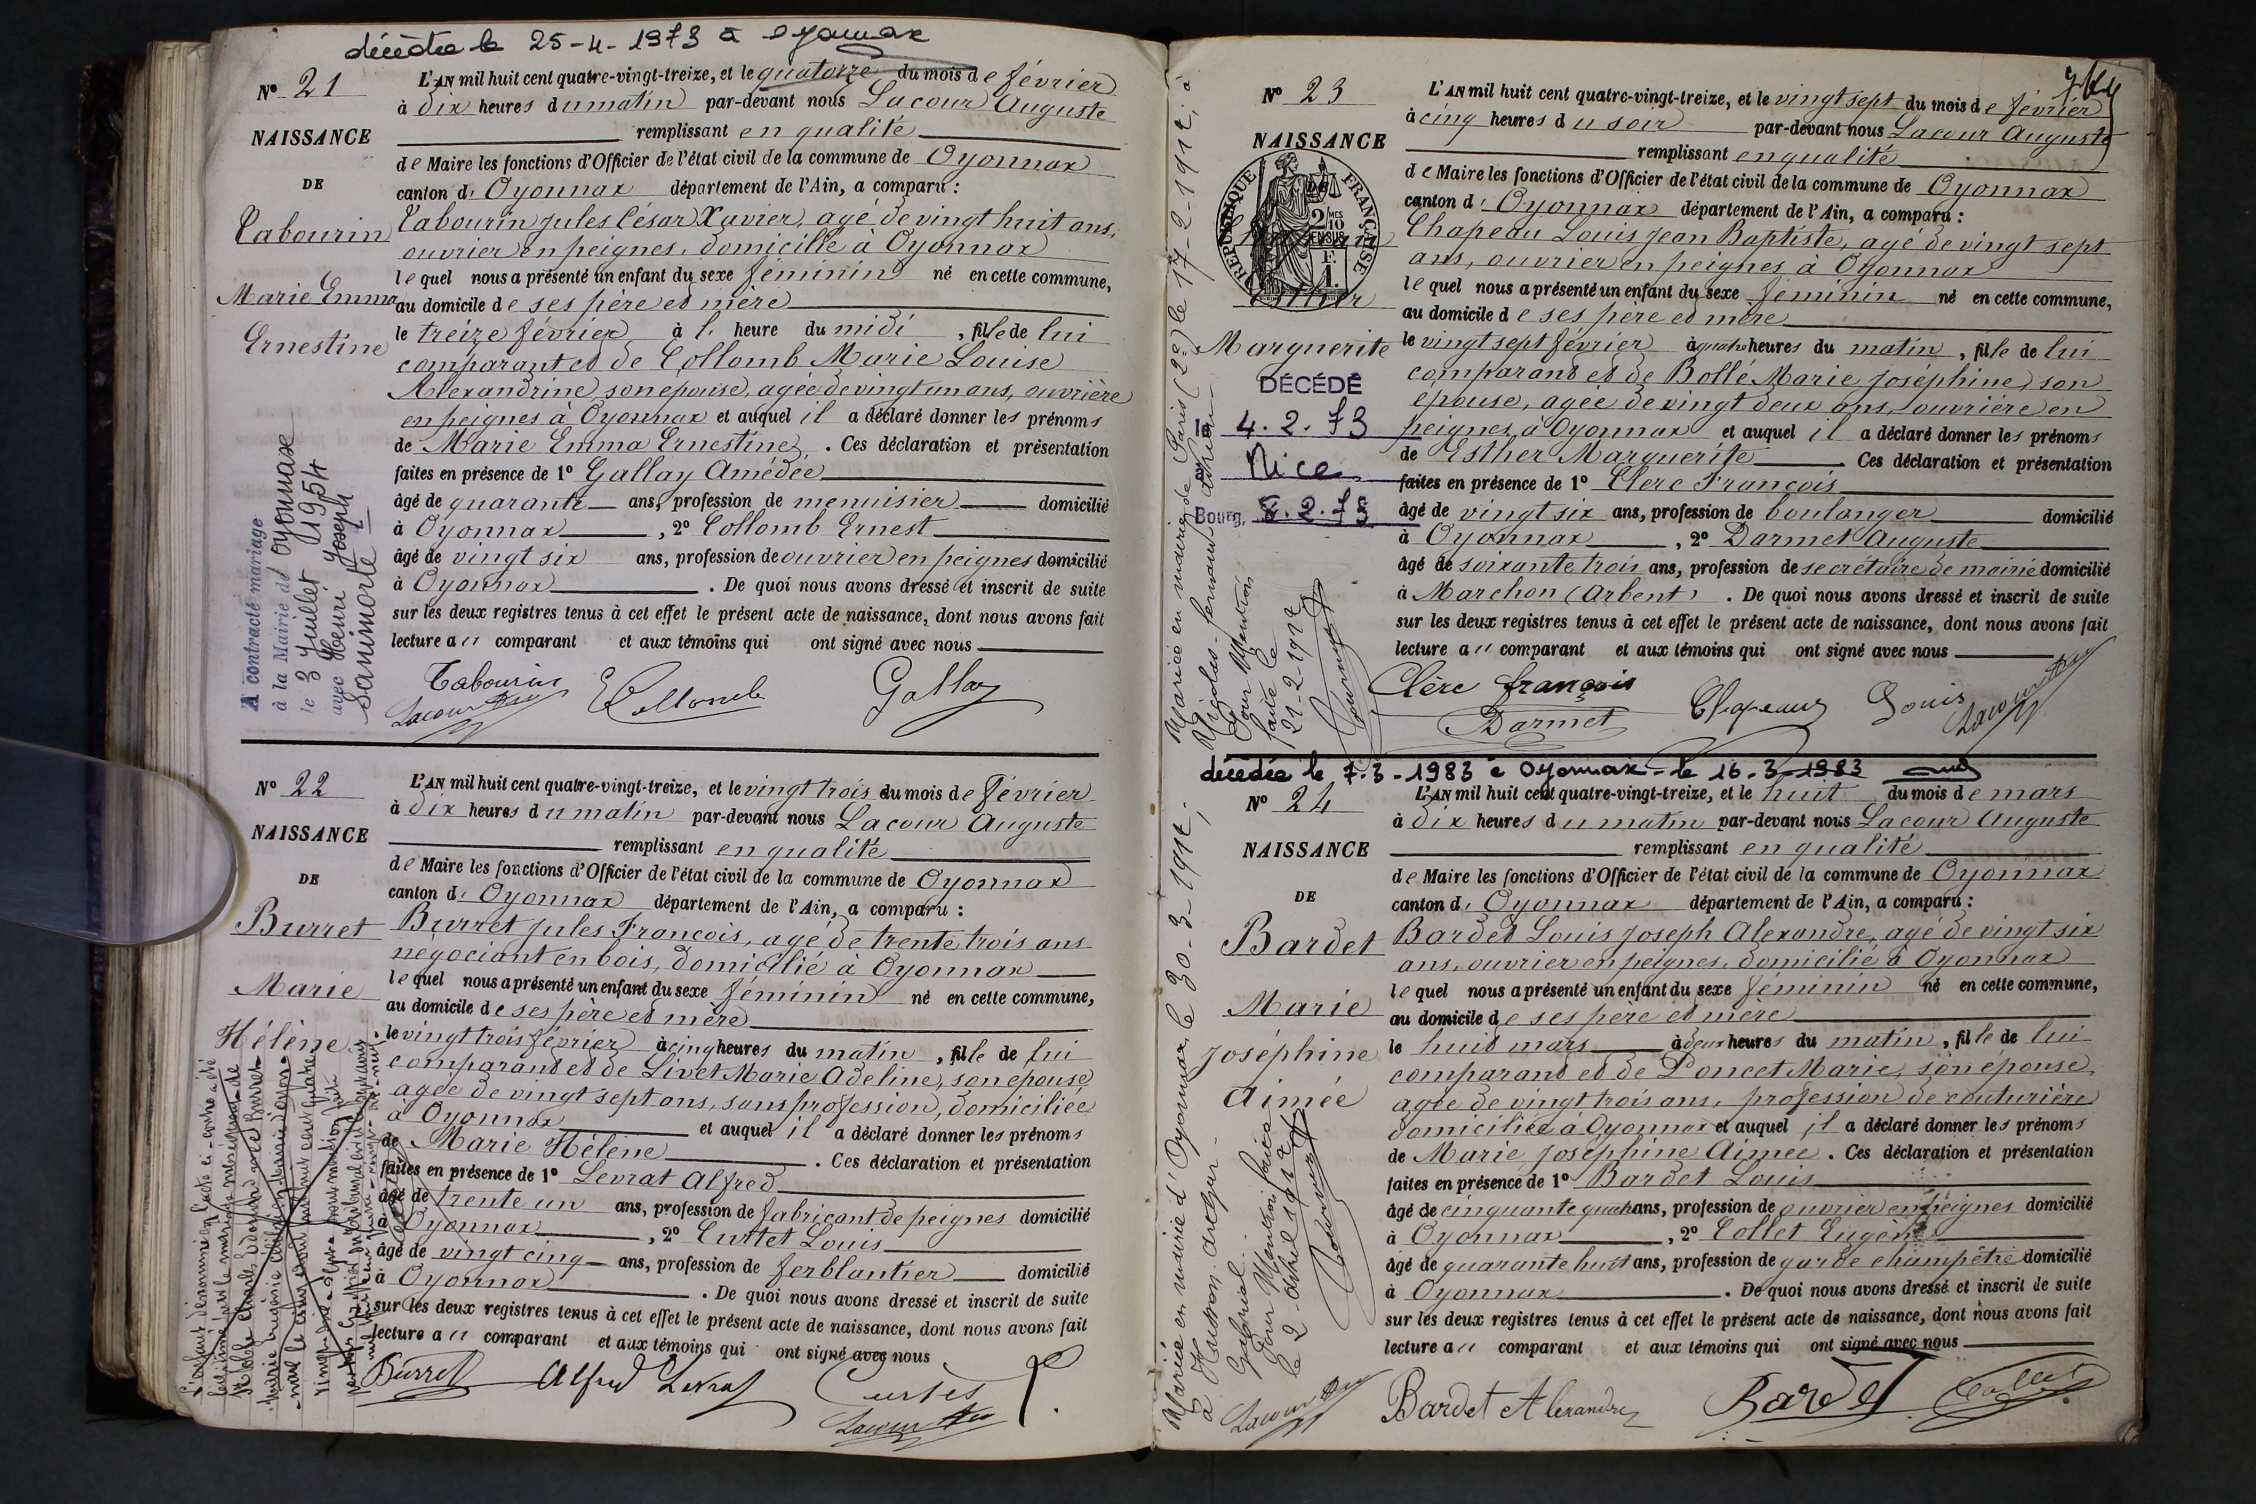 décédée le 25-4-1973 à Oyonnax
N° 21
NAISSANCE
DE
Tabourin
Marie Emma
Ernestine
L'AN mil huit cent quatre-vingt-treize, et le quatorze du mois de février
à dix heures du matin par-devant nous Lacour Auguste
remplissant en qualité
de Maire les fonctions d'Officier de l'état civil de la commune de Oyonnax
canton d' Oyonnax département de l'Ain, a comparu :
Tabourin Jules César Xavier, agé de vingt huit ans,
ouvrier en peignes, domicilié à Oyonnax
lequel nous a présenté un enfant du sexe féminin né en cette commune,
au domicile de ses père et mère
le treize février à 1 heure du midi, fille de lui
comparant et de Collomb Marie Louise
Alexandrine, son épouse, agée de vingt un ans, ouvrière
en peignes à Oyonnax et auquel il a déclaré donner les prénoms
de Marie Emma Ernestine. Ces déclaration et présentation
faites en présence de 1° Gallay Amédée
âgé de quarante ans, profession de menuisier domicilié
à Oyonnax, 2° Collomb Ernest
âgé de vingt six ans, profession de ouvrier en peignes domicilié
à Oyonnax. De quoi nous avons dressé et inscrit de suite
sur les deux registres tenus à cet effet le présent acte de naissance, dont nous avons fait
lecture au comparant et aux témoins qui ont signé avec nous
Tabourin
Collomb
Gallay
Lacour
A contracté mariage
à la Mairie de Oyonnax
le 3 Juillet 1954
avec Henri Joseph
Sanimorte
N° 22
NAISSANCE
DE
Burret
Marie
Hélène
L'AN mil huit cent quatre-vingt-treize, et le vingt trois du mois de février
à dix heures du matin par-devant nous Lacour Auguste
remplissant en qualité
de Maire les fonctions d'Officier de l'état civil de la commune de Oyonnax
canton d' Oyonnax département de l'Ain, a comparu :
Burret Jules François, agé de trente trois ans
négociant en bois, domicilié à Oyonnax
lequel nous a présenté un enfant du sexe féminin né en cette commune,
au domicile de ses père et mère
le vingt trois février à cinq heures du matin, fille de lui
comparant et de Livet Marie Adeline, son épouse
agée de vingt sept ans, sans profession, domiciliée
à Oyonnax et auquel il a déclaré donner les prénoms
de Marie Hélène. Ces déclaration et présentation
faites en présence de 1° Levrat Alfred
âgé de trente un ans, profession de fabricant de peignes domicilié
à Oyonnax, 2° Curtet Louis
âgé de vingt cinq ans, profession de ferblantier domicilié
à Oyonnax. De quoi nous avons dressé et inscrit de suite
sur les deux registres tenus à cet effet le présent acte de naissance, dont nous avons fait
lecture au comparant et aux témoins qui ont signé avec nous
Burret
Alfred Levrat
Curtet
Lacour
N° 23
NAISSANCE
DE
RÉPUBLIQUE FRANÇAISE
2/10 EN SUS
Marguerite
DÉCÉDÉ
le 4.2.73
Nice
Bourg, 8.2.73
L'AN mil huit cent quatre-vingt-treize, et le vingt sept du mois de février
à cinq heures du soir par-devant nous Lacour Auguste
remplissant en qualité
de Maire les fonctions d'Officier de l'état civil de la commune de Oyonnax
canton d' Oyonnax département de l'Ain, a comparu :
Chapeau Louis Jean Baptiste, agé de vingt sept
ans, ouvrier en peignes à Oyonnax
lequel nous a présenté un enfant du sexe féminin né en cette commune,
au domicile de ses père et mère
le vingt sept février à quatre heures du matin, fille de lui
comparant et de Bollé Marie Joséphine, son
épouse, agée de vingt deux ans, ouvrière en
peignes à Oyonnax et auquel il a déclaré donner les prénoms
de Esther Marguerite. Ces déclaration et présentation
faites en présence de 1° Clerc François
âgé de vingt six ans, profession de boulanger domicilié
à Oyonnax, 2° Darmet Auguste
âgé de soixante trois ans, profession de secrétaire de mairie domicilié
à Marchon (Arbent). De quoi nous avons dressé et inscrit de suite
sur les deux registres tenus à cet effet le présent acte de naissance, dont nous avons fait
lecture au comparant et aux témoins qui ont signé avec nous
Clère françois
Darmet
Chapeau Louis
Lacour
Mariée en mairie de Paris (2e) le 17-2-1912, à
Nicolas
Pour Mention
faite le
21-2-1922
décédée le 7-3-1983 à Oyonnax - le 16-3-1983
N° 24
NAISSANCE
DE
Bardet
Marie
Joséphine
Aimée
L'AN mil huit cent quatre-vingt-treize, et le huit du mois de mars
à dix heures du matin par-devant nous Lacour Auguste
remplissant en qualité
de Maire les fonctions d'Officier de l'état civil de la commune de Oyonnax
canton d' Oyonnax département de l'Ain, a comparu :
Bardet Louis Joseph Alexandre, agé de vingt six
ans, ouvrier en peignes, domicilié à Oyonnax
lequel nous a présenté un enfant du sexe féminin né en cette commune,
au domicile de ses père et mère
le huit mars à deux heures du matin, fille de lui
comparant et de Poncet Marie, son épouse,
agée de vingt trois ans, profession de couturière
domiciliée à Oyonnax et auquel il a déclaré donner les prénoms
de Marie Joséphine Aimée. Ces déclaration et présentation
faites en présence de 1° Bardet Louis
âgé de cinquante quatre ans, profession de ouvrier en peignes domicilié
à Oyonnax, 2° Collet Eugène
âgé de quarante huit ans, profession de garde champêtre domicilié
à Oyonnax. De quoi nous avons dressé et inscrit de suite
sur les deux registres tenus à cet effet le présent acte de naissance, dont nous avons fait
lecture au comparant et aux témoins qui ont signé avec nous
Lacour
Bardet Alexandre
Bardet
Collet
Mariée en mairie d'Oyonnax le 30-3-1912,
à Husson
Gabriel.
Pour Mention faite
le 2 Avril